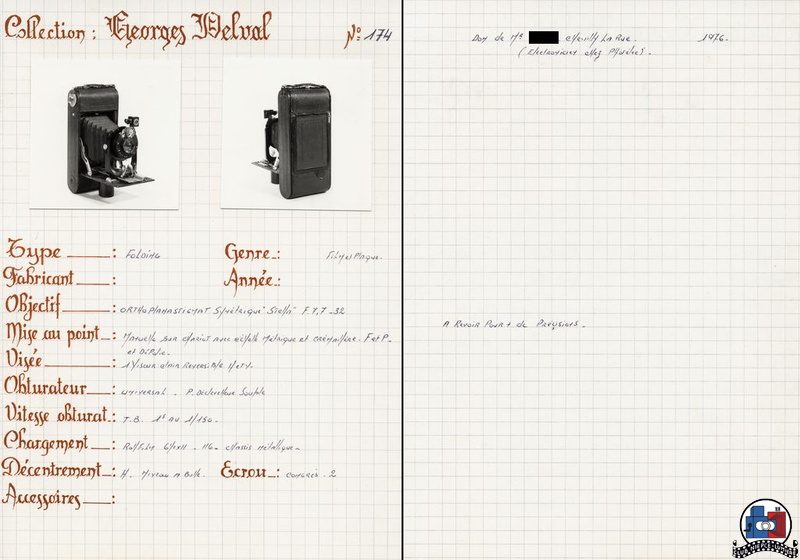 Collection : Georges Delval
No 174
Type : Folding
Genre : Film et Plaque.
Fabricant :
Année :
Objectif : ORTHOPLANASTIGMAT Symétrique "Stella" F. 7,7 - 32
Mise au point : Manuelle sur chariot avec échelle Métrique et crémaillère. F et P.
et
Visée : 1 Viseur clair Reversible H et V.
Obturateur : universal - P. Déclencheur Souple
Vitesse obturat. : T.B. 1s au 1/150 -
Chargement : 116 - chassis métallique -
Décentrement : H. Niveau à Bulle.
Ecrou : congrès . 2
Accessoires :
Don de Mr La Rue. 1976.
(Electronicien chez
A Revoir Pour + de Précisions -